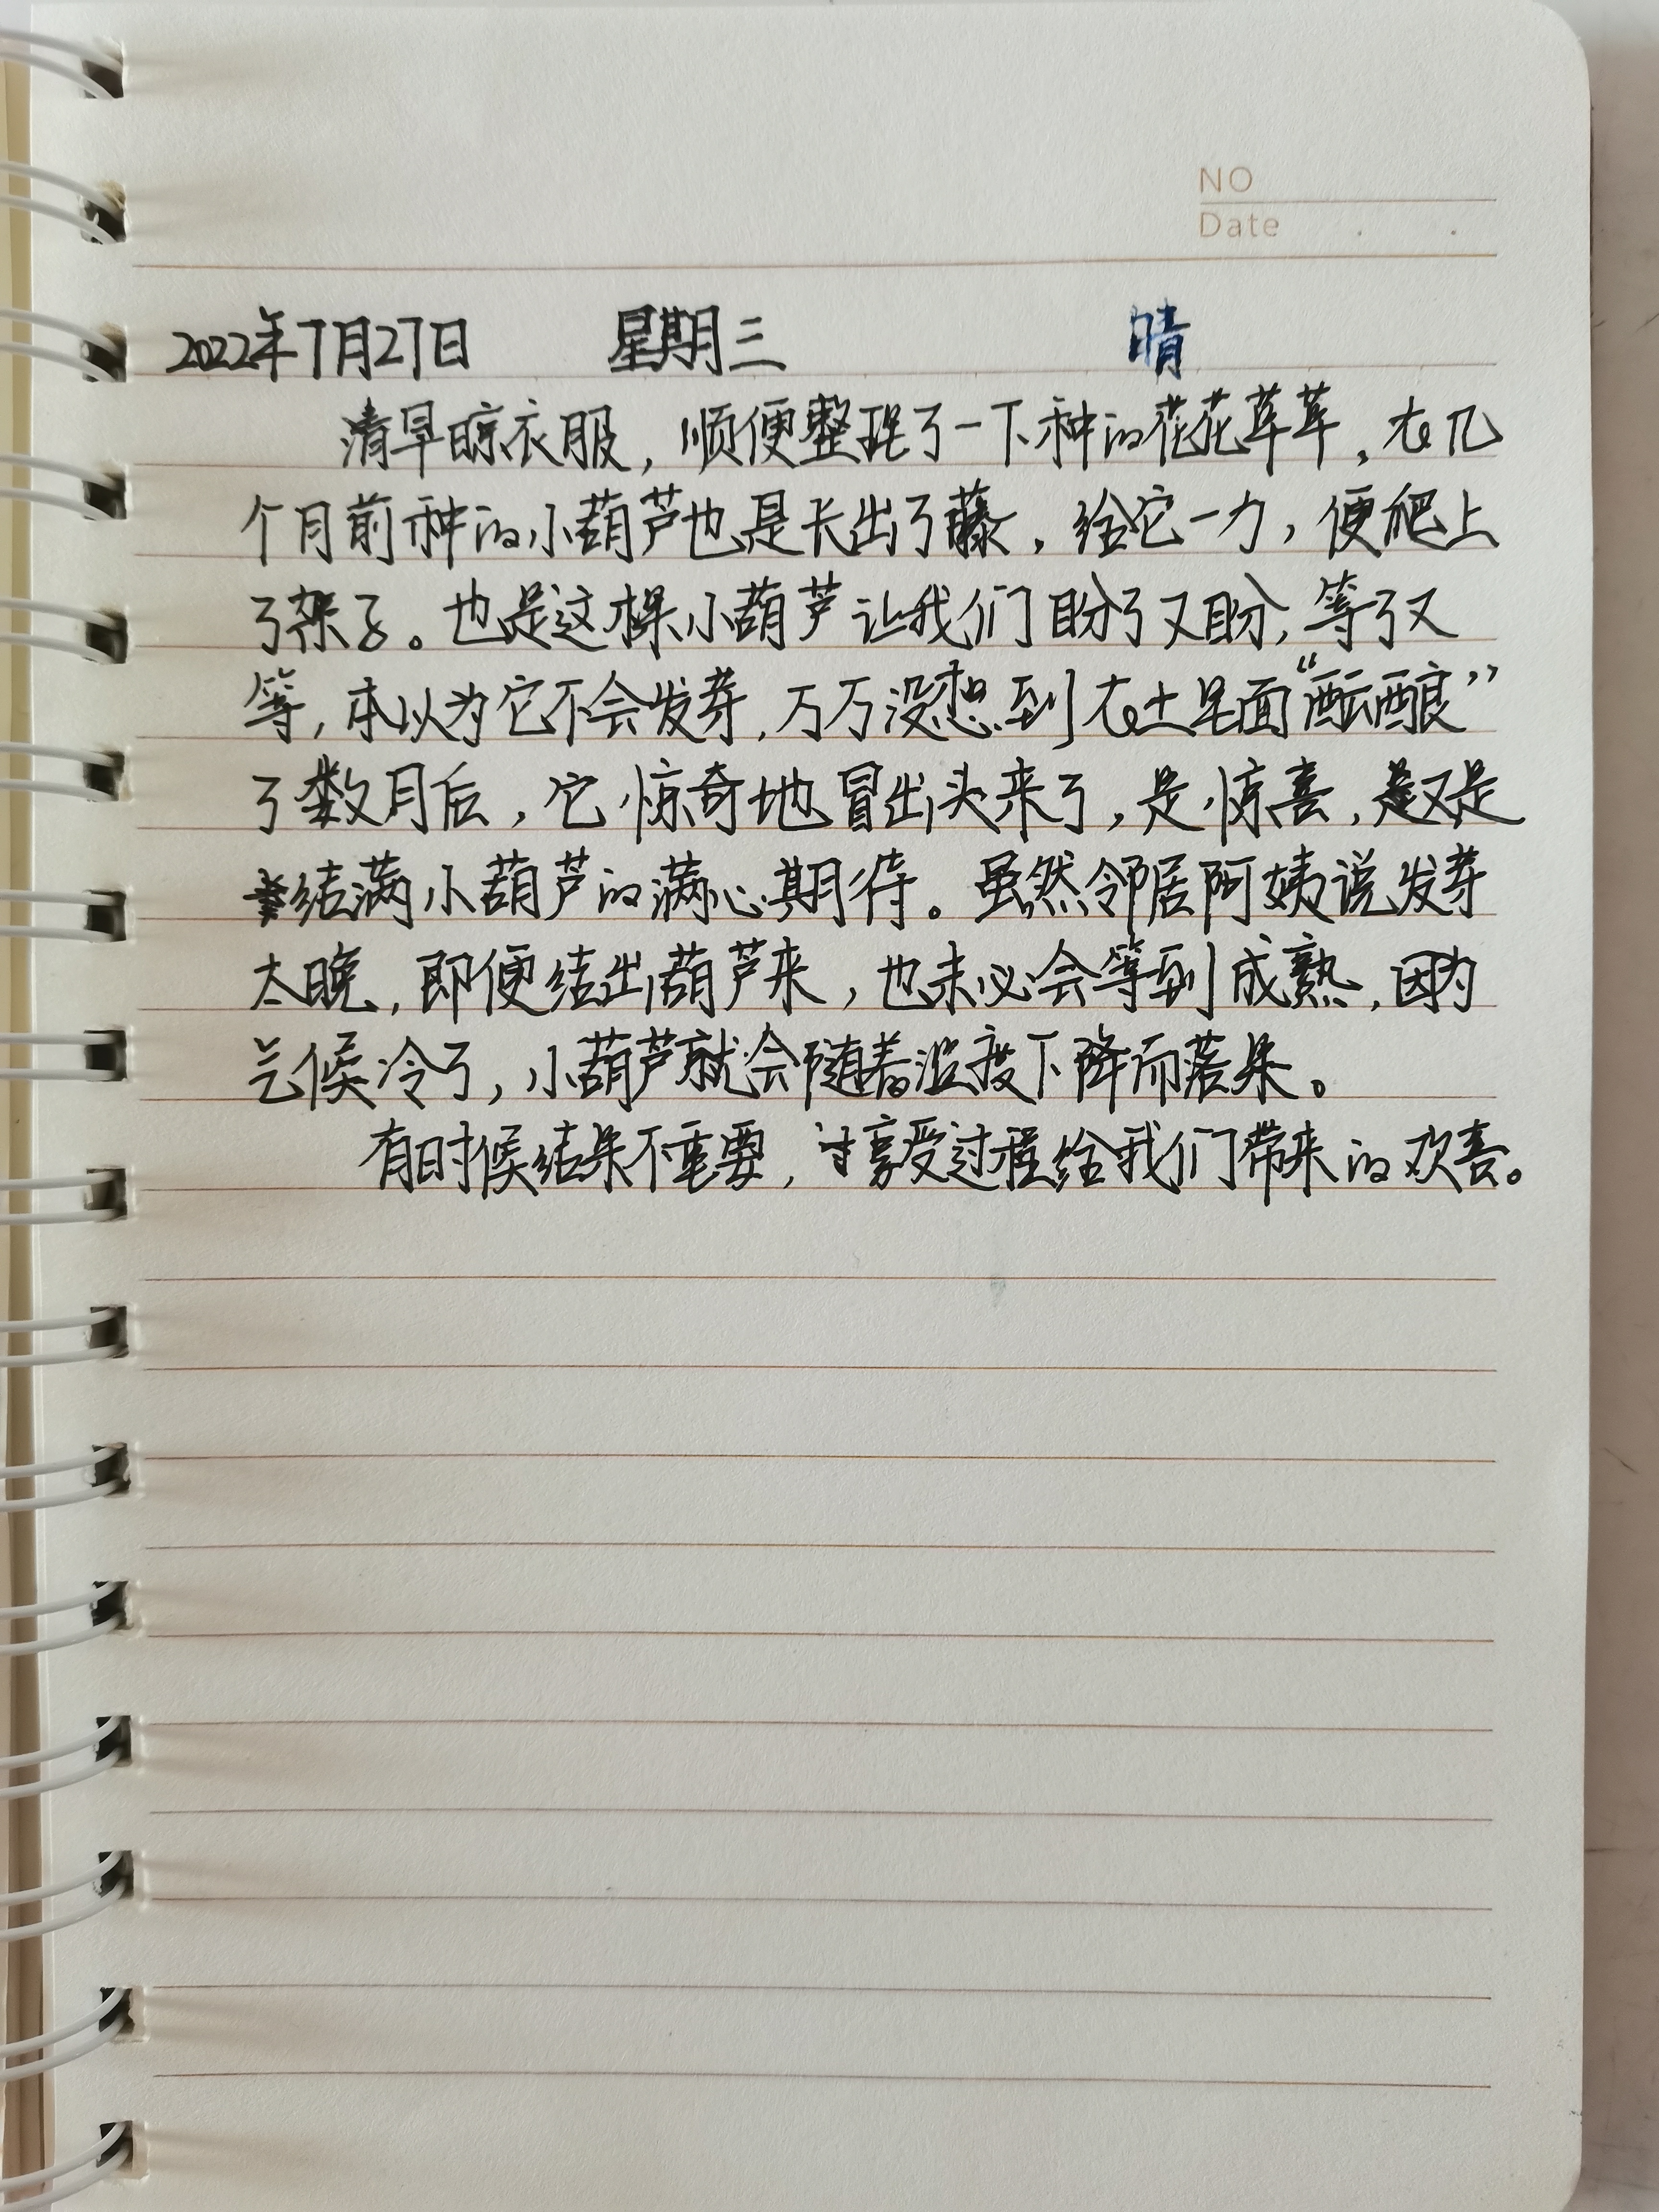 NO
Date . .
2022年7月27日 星期三 晴
清早晾衣服，顺便整理了一下种的花花草草，在几
个月前种的小葫芦也是长出了藤，给它一力，便爬上
了架子。也是这棵小葫芦让我们盼了又盼，等了又
等，本以为它不会发芽，万万没想到在土里面“酝酿”
了数月后，它惊奇地冒出头来了，是惊喜，更是
结满小葫芦的满心期待。虽然邻居阿姨说发芽
太晚，即便结出葫芦来，也未必会等到成熟，因为
气候冷了，小葫芦就会随着温度下降而落果。
有时候结果不重要，享受过程给我们带来的欢喜。